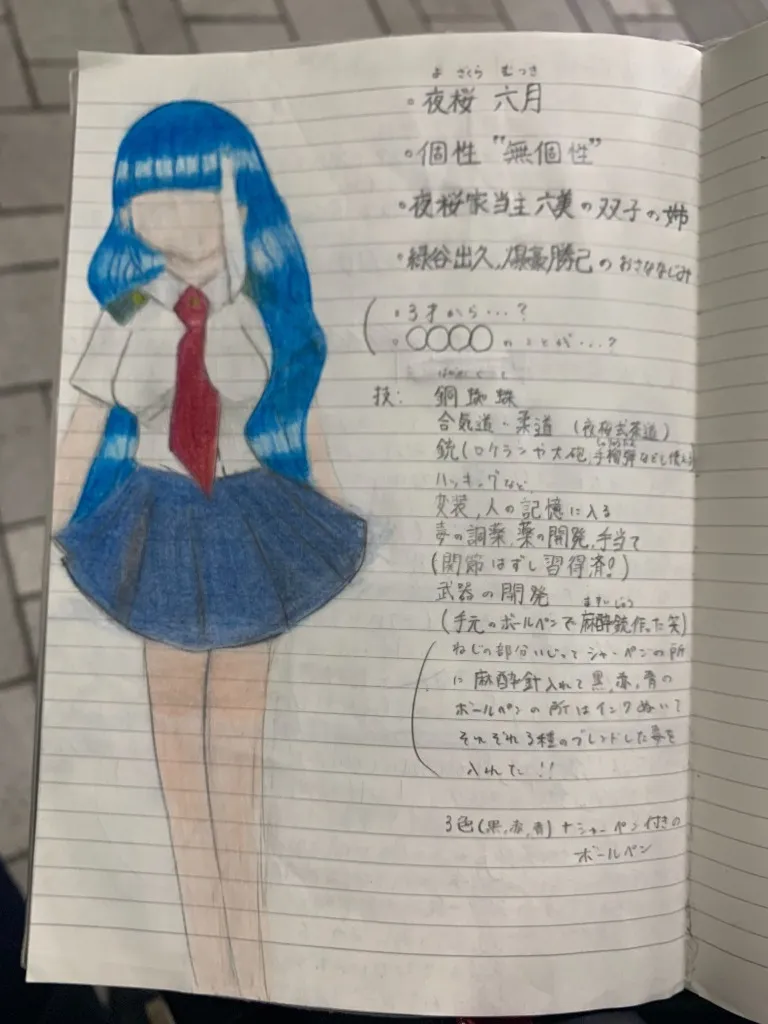 よざくら むつき
・夜桜 六月
・個性 "無個性"
・夜桜家当主 六美の双子の姉
・緑谷出久、爆豪勝己のおさななじみ
・3才から・・・?
・○○○○のことが・・・?
はがねぐも
技: 鋼蜘蛛
合気道・柔道 (夜桜式柔道)
しゅりゅうだん
銃(ロケランや大砲、手榴弾なども使える)
ハッキングなど、
変装、人の記憶に入る
毒の調薬、薬の開発、手当て
(関節はずし習得済!)
武器の開発
ますいじゅう
(手元のボールペンで麻酔銃作った笑)
ねじの部分いじってシャーペンの所
に麻酔針入れて黒、赤、青の
ボールペンの所はインクぬいて
それぞれ3種のブレンドした毒を
入れた!!
3色(黒、赤、青)+シャーペン付きの
ボールペン